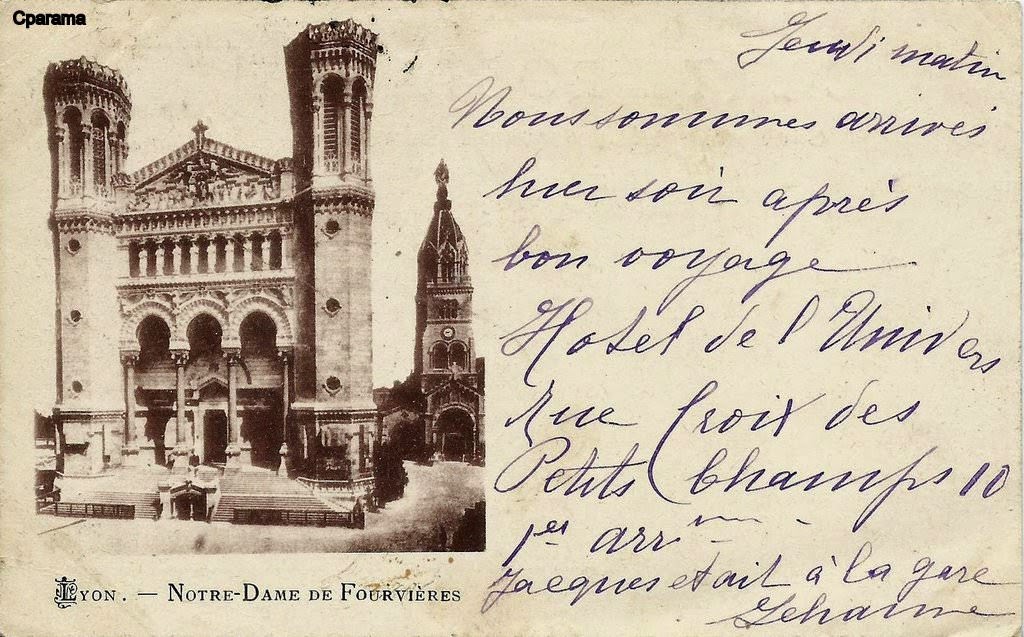 Cparama
Jeudi matin
Nous sommes arrivés
hier soir après
bon voyage
Hotel de l'Univers
Rue Croix des
Petits Champs 10
1er arrm -
Jacques etait à la gare
Jehanne
LYON. — NOTRE-DAME DE FOURVIÈRES